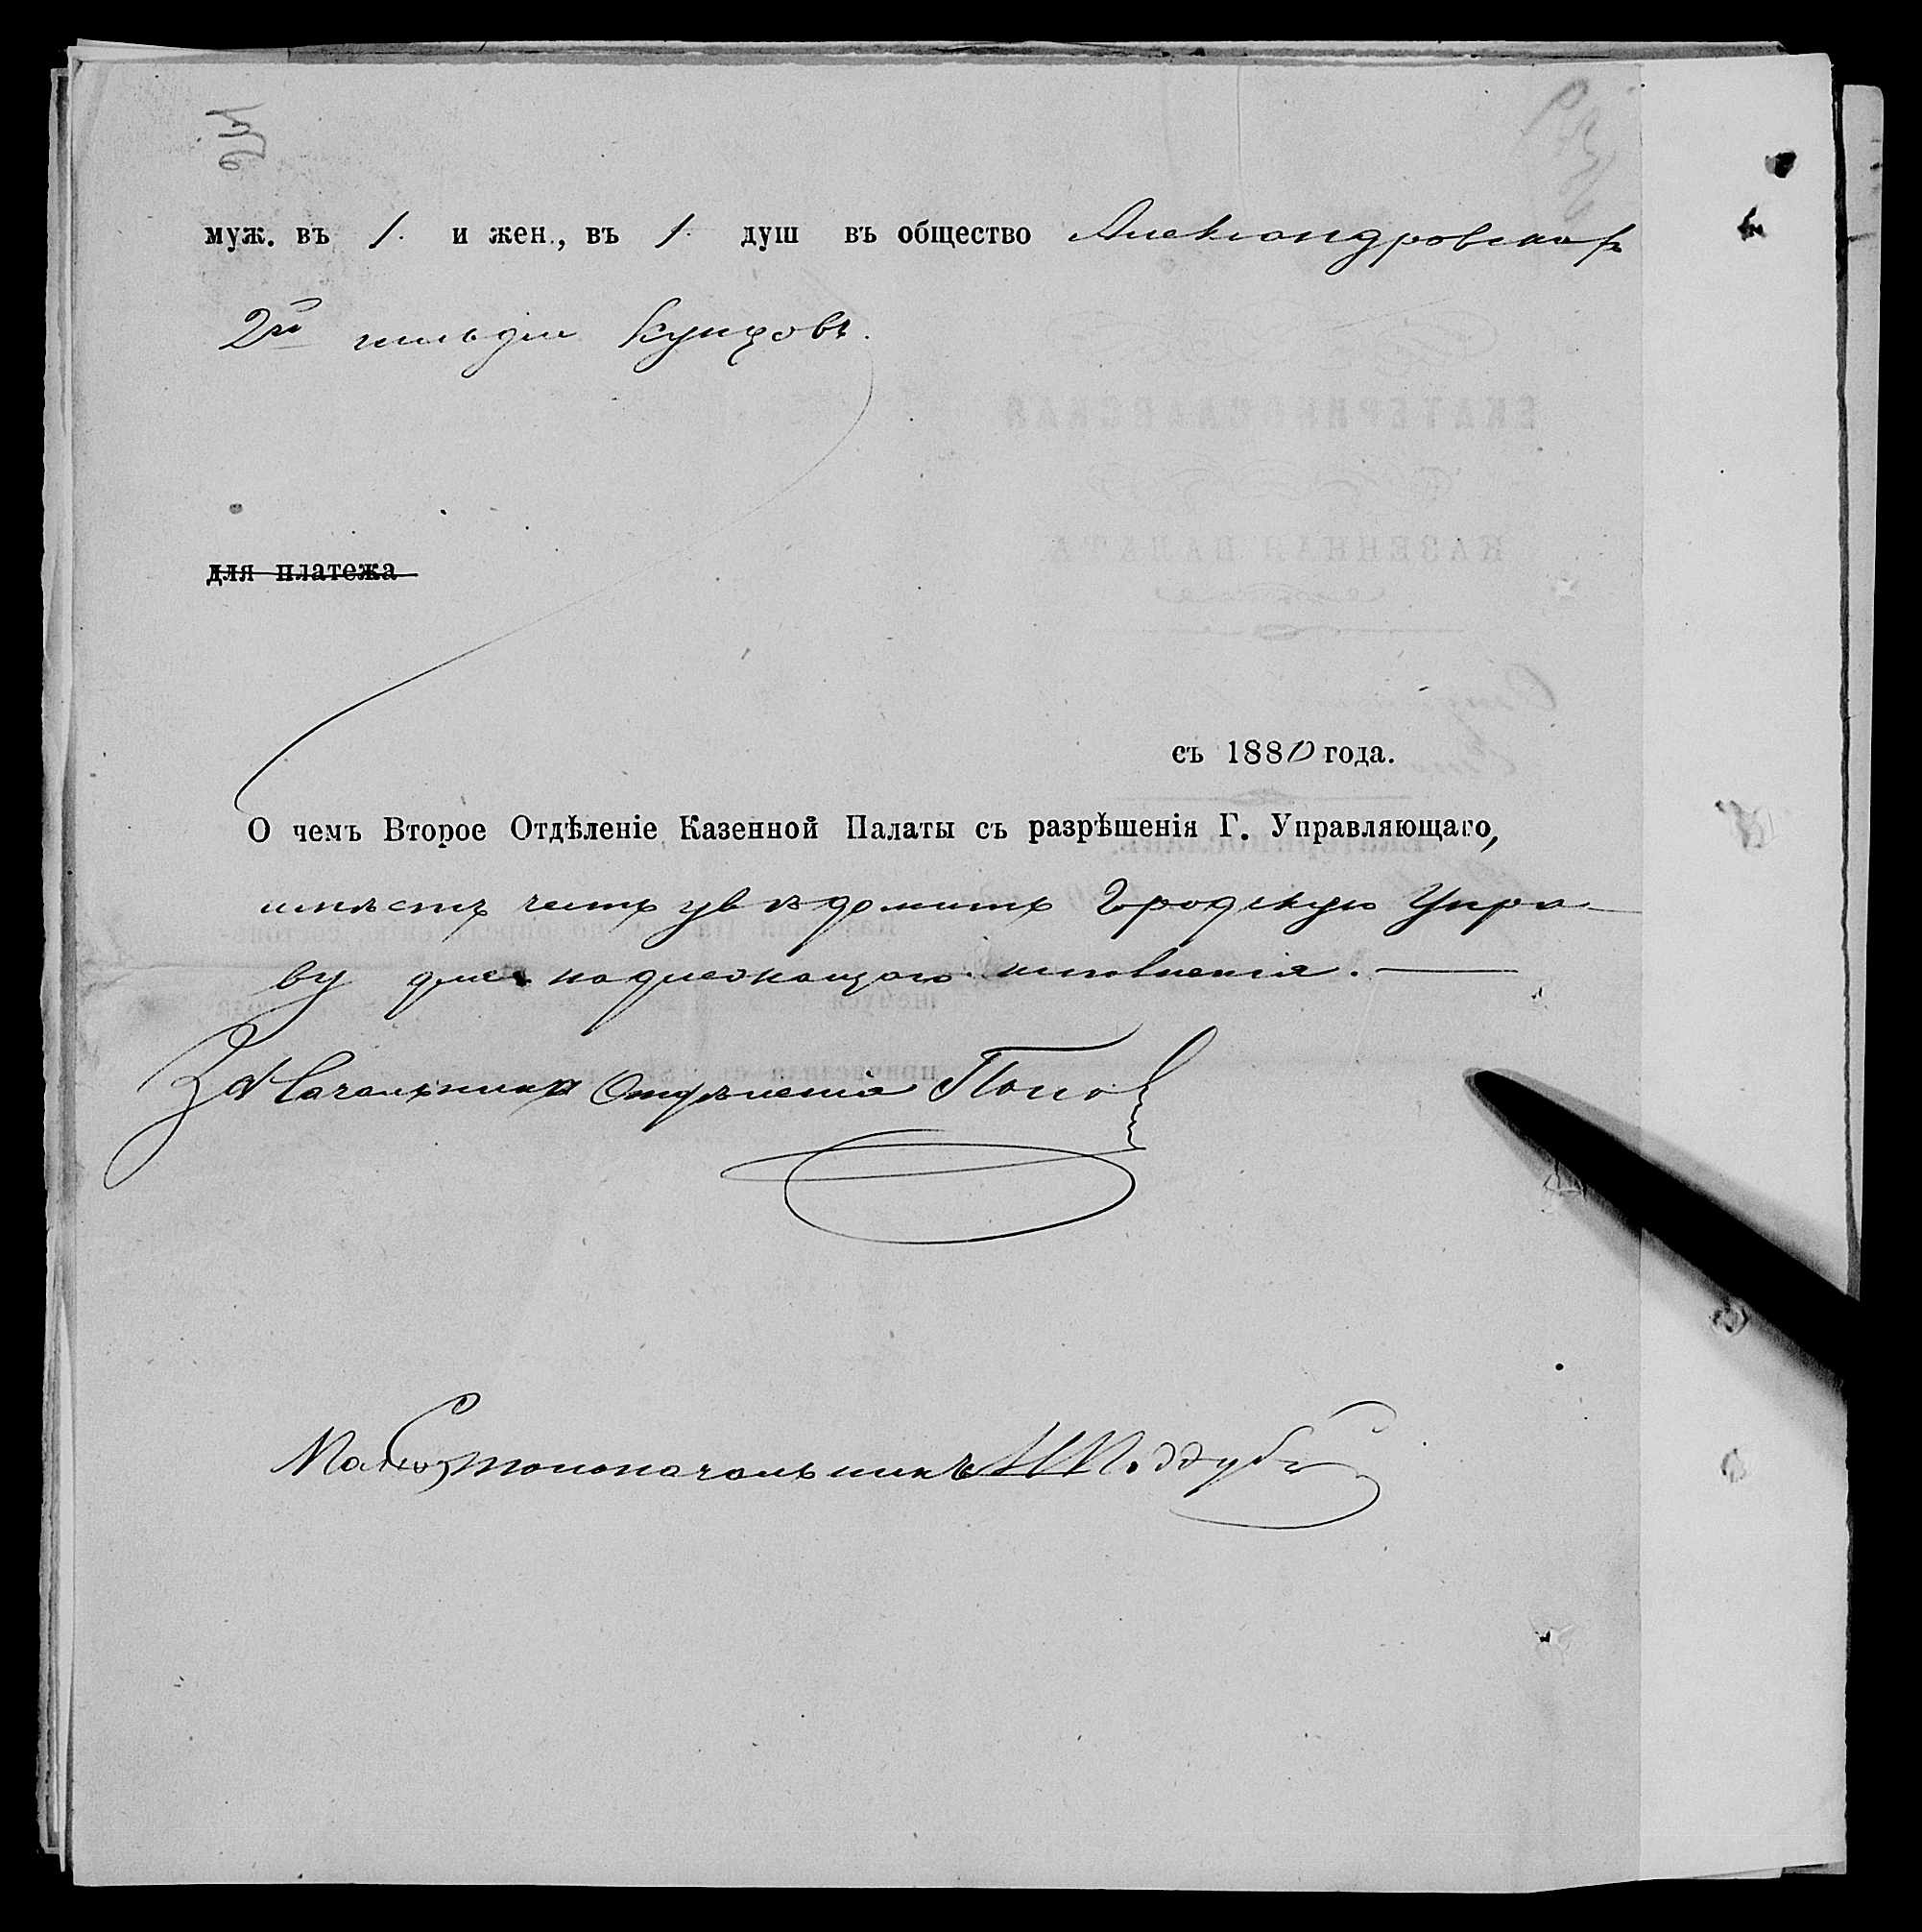 муж. въ 1. и жен., въ 1. душ въ общество Александровскихъ
2й гильдіи Купцовъ.
для платежа
съ 1880 года.
О чемъ Второе Отдѣленіе Казенной Палаты съ разрѣшенія Г. Управляющаго,
имѣетъ честь увѣдомить Городскую Упра-
ву для надлежащаго исполненія.
За Начальника Отдѣленія Попов
Столоначальникъ